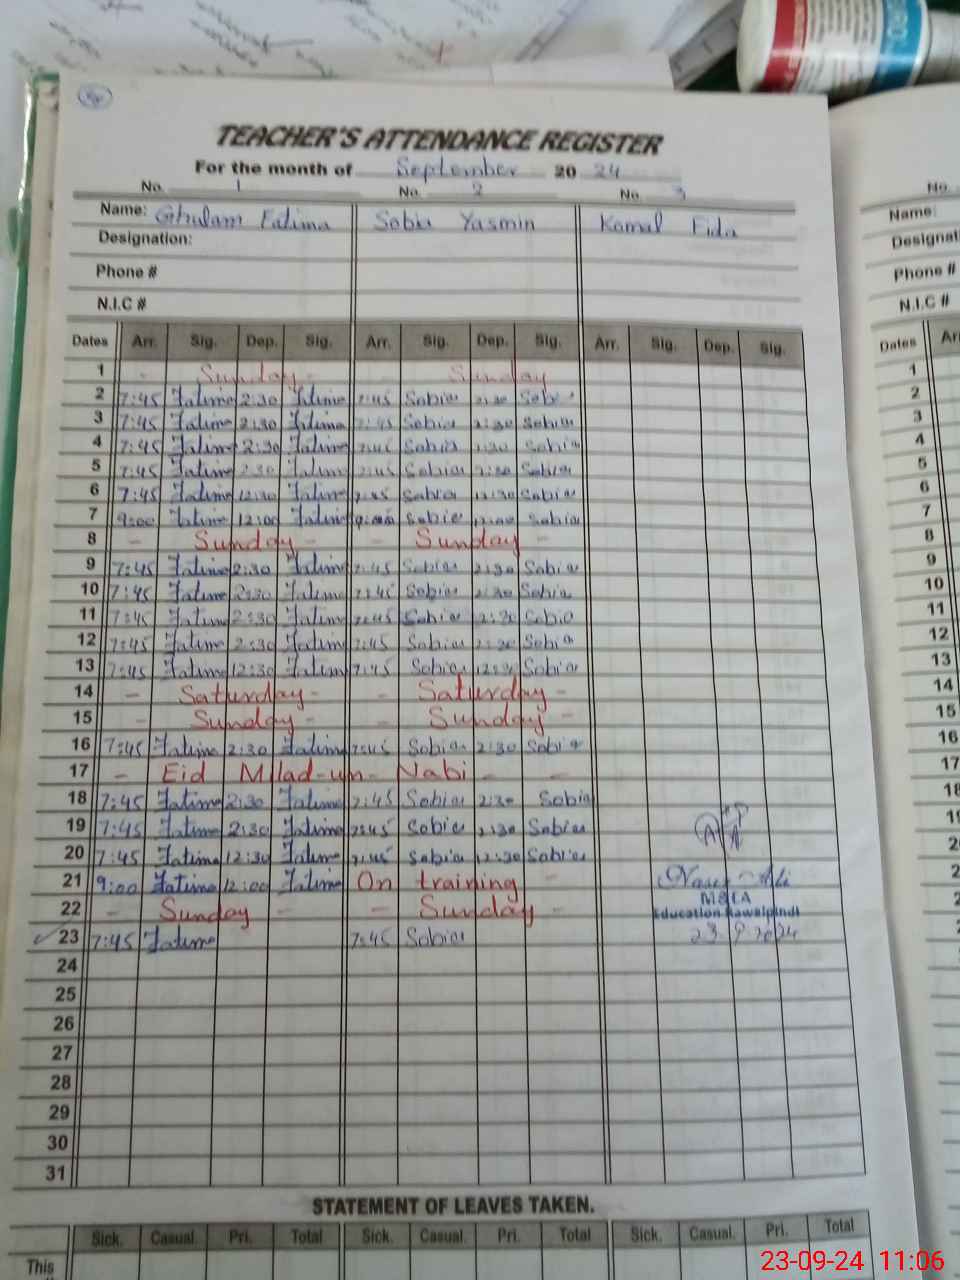 TEACHER'S ATTENDANCE REGISTER
For the month of September 20 24
No. 1 No. 2 No. 3 No.
Name: Ghulam Fatima Sobia Yasmin Komal Fida Name:
Designation: Designat
Phone # Phone #
N.I.C # N.I.C #
Dates Arr. Sig. Dep. Sig. Arr. Sig. Dep. Sig. Arr. Sig. Dep. Sig. Dates Ar
1 - Sunday - - Sunday 1
2 7:45 Fatima 2:30 Fatima 7:45 Sobia 2:30 Sobia 2
3 7:45 Fatima 2:30 Fatima 7:45 Sobia 2:30 Sobia 3
4 7:45 Fatima 2:30 Fatima 7:45 Sobia 2:30 Sobia 4
5 7:45 Fatima 2:30 Fatima 7:45 Sobia 2:30 Sobia 5
6 7:45 Fatima 12:30 Fatima 7:45 Sobia 12:30 Sobia 6
7 9:00 Fatima 12:00 Fatima 9:00 Sobia 12:00 Sobia 7
8 - Sunday - - Sunday - 8
9 7:45 Fatima 2:30 Fatima 7:45 Sobia 2:30 Sobia 9
10 7:45 Fatima 2:30 Fatima 7:45 Sobia 2:30 Sobia 10
11 7:45 Fatima 2:30 Fatima 7:45 Sobia 2:30 Sobia 11
12 7:45 Fatima 2:30 Fatima 7:45 Sobia 2:30 Sobia 12
13 7:45 Fatima 12:30 Fatima 7:45 Sobia 12:30 Sobia 13
14 - Saturday - - Saturday - 14
15 - Sunday - - Sunday - 15
16 7:45 Fatima 2:30 Fatima 7:45 Sobia 2:30 Sobia 16
17 - Eid Milad-un-Nabi - - 17
18 7:45 Fatima 2:30 Fatima 7:45 Sobia 2:30 Sobia 18
19 7:45 Fatima 2:30 Fatima 7:45 Sobia 2:30 Sobia
20 7:45 Fatima 12:30 Fatima 7:45 Sobia 12:30 Sobia
21 9:00 Fatima 12:00 Fatima On training - Ali
22 - Sunday - - Sunday - Education Rawalpindi
23 7:45 Fatima 7:45 Sobia 23-9-2024
24
25
26
27
28
29
30
31
STATEMENT OF LEAVES TAKEN.
Sick. Casual. Pri. Total Sick. Casual. Pri. Total Sick. Casual. Pri. Total
This
23-09-24 11:06